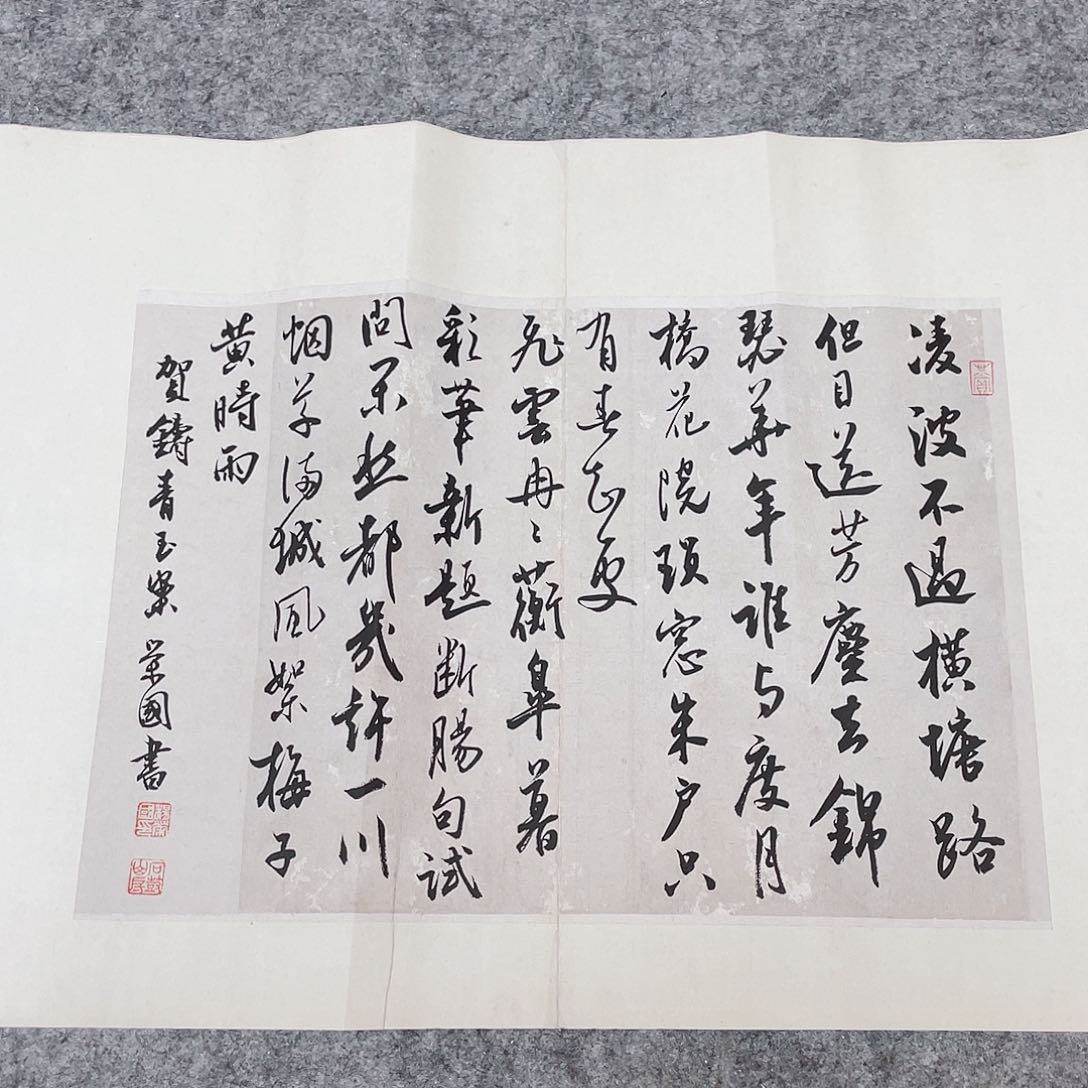 凌波不過橫塘路
但目送芳塵去錦
瑟華年誰与度月
橋花院瑣窓朱戶只
有春知處
飛雲冉〻蘅皋暮
彩筆新題断腸句試
問閒愁都幾許一川
烟草滿城風絮梅子
黃時雨
賀鑄青玉案 榮國書